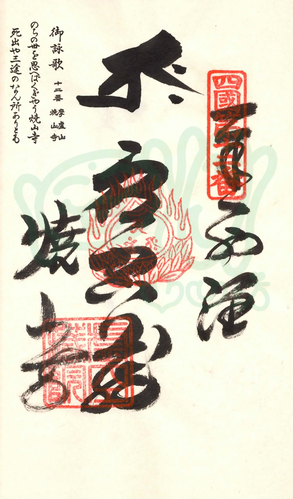 四國第十二番
奉納経
虚空蔵
焼山寺
御詠歌 十二番 摩盧山 焼山寺
のちの世を思へばくぎやう焼山寺
死出や三途のなん所ありとも